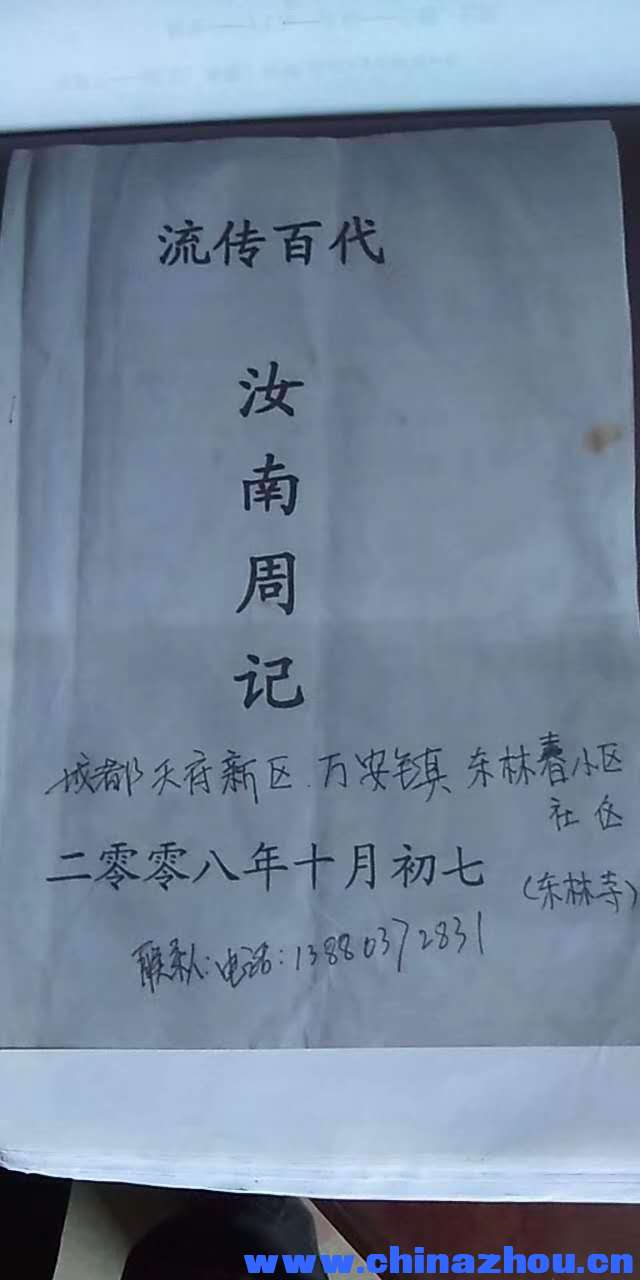 流传百代
汝
南
周
记
成都天府新区.万安镇东林春小区
社区
二零零八年十月初七
(东林寺)
联系人:电话:13880372831
www.chinazhou.cn